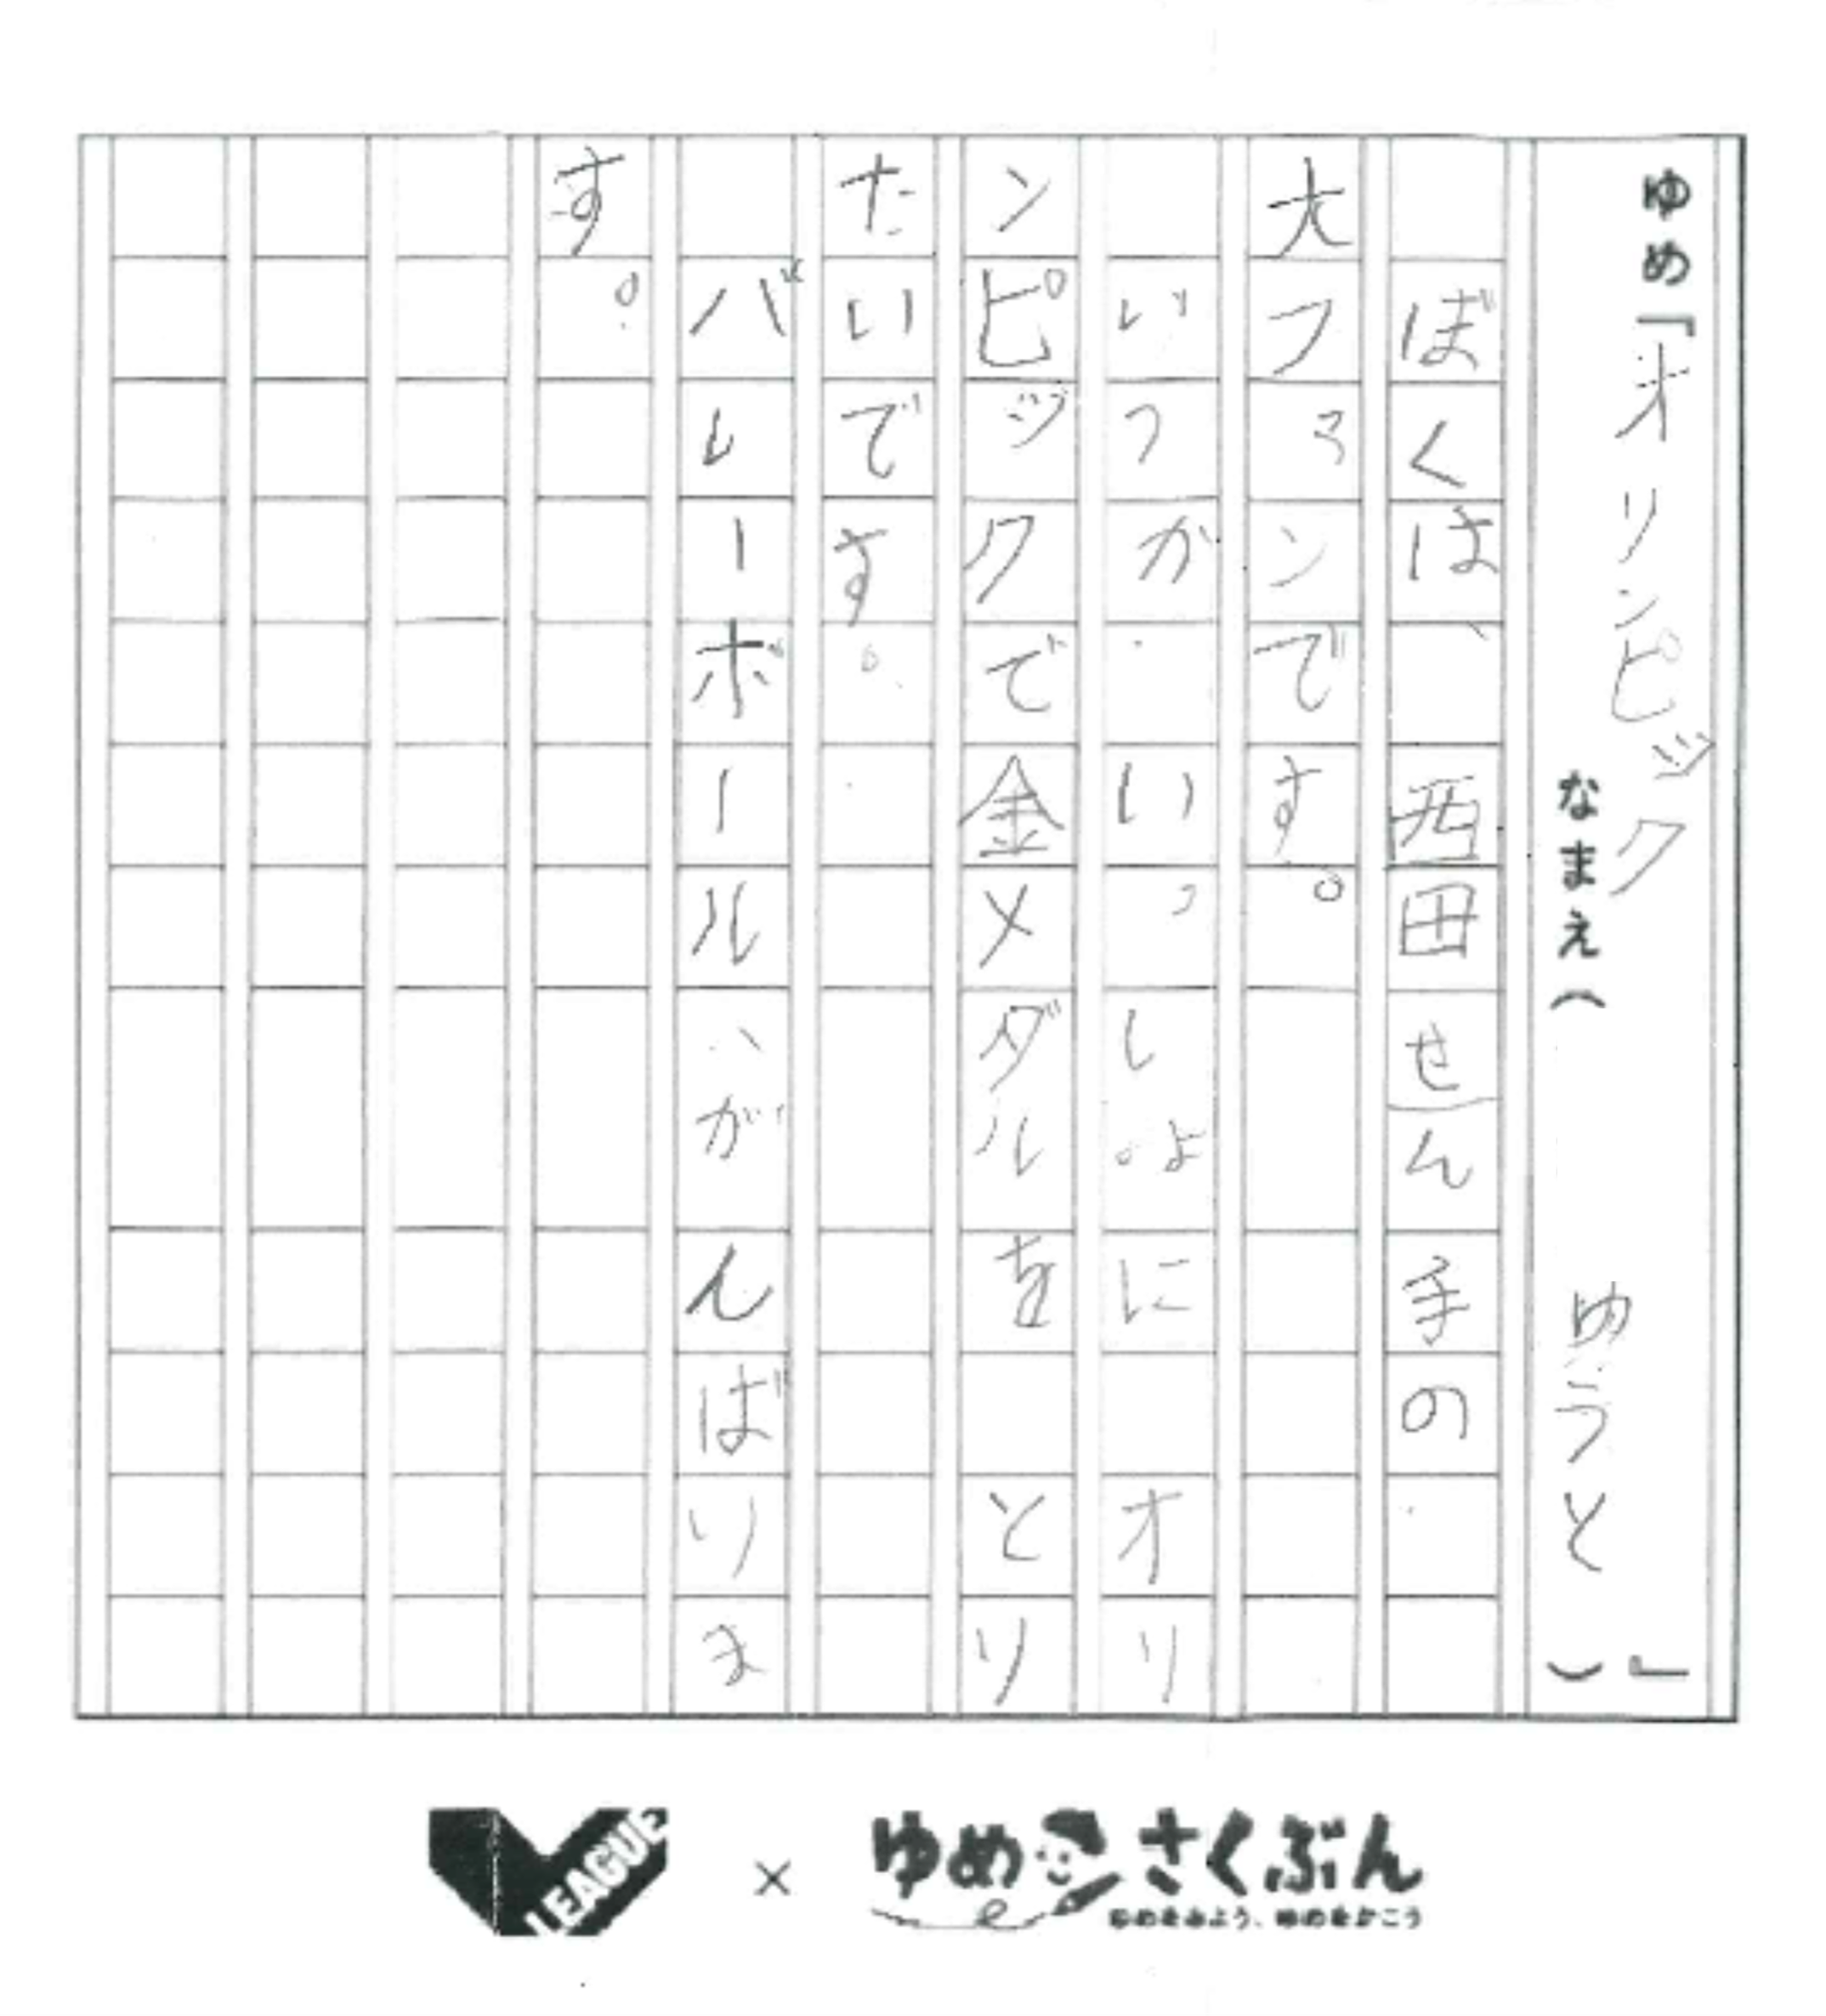 ゆめ「オリンピック」
なまえ(ゆうと)
ぼくは、西田せん手の
大ファンです。
いつか、いっしょにオリ
ンピックで金メダルをとり
たいです。
バレーボール、がんばりま
す。
V LEAGUE × ゆめさくぶん
ゆめをみよう、ゆめをかこう